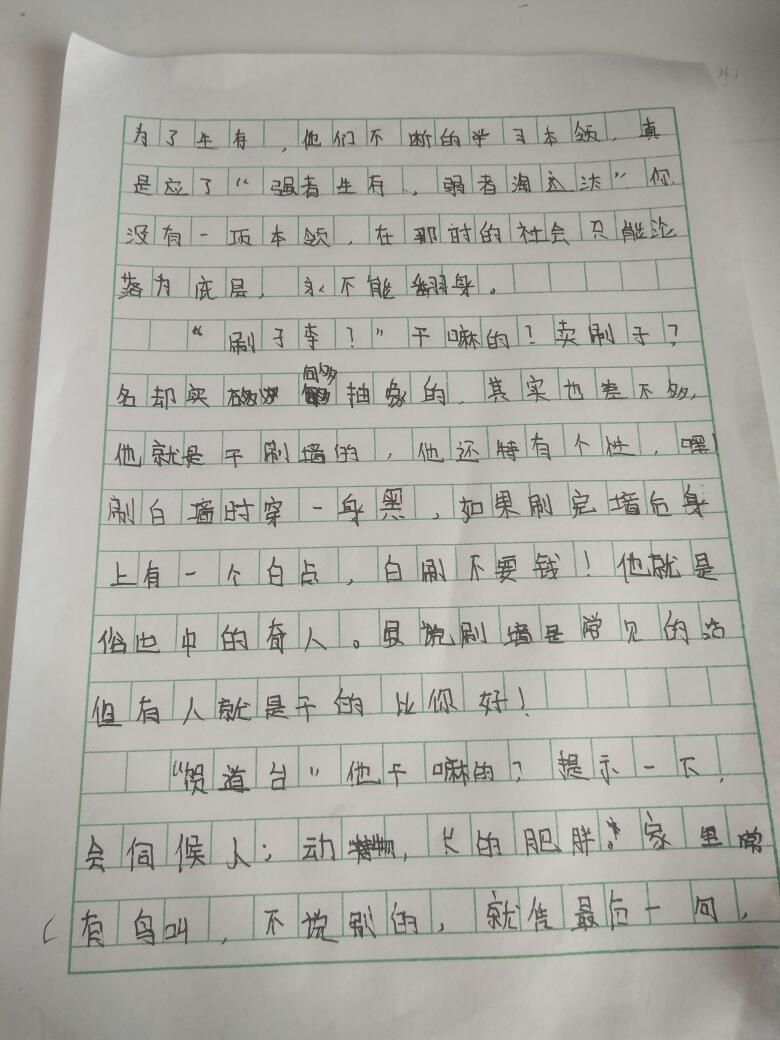 为了生存，他们不断的学习本领，真
是应了“强者生存，弱者淘汰法”你
没有一项本领，在那时的社会只能沦
落为底层，永不能翻身。
“刷子李？”干嘛的？卖刷子？
名却实 够抽象的，其实也差不多，
他就是干刷墙的，他还特有个性，嘿！
刷白墙时穿一身黑，如果刷完墙后身
上有一个白点，白刷不要钱！他就是
俗世中的奇人。虽说刷墙是常见的活
但有人就是干的比你好！
“贺道台”他干嘛的？提示一下，
会伺候人；动物，长的肥胖？家里常
有鸟叫，不说别的，就凭最后一句，